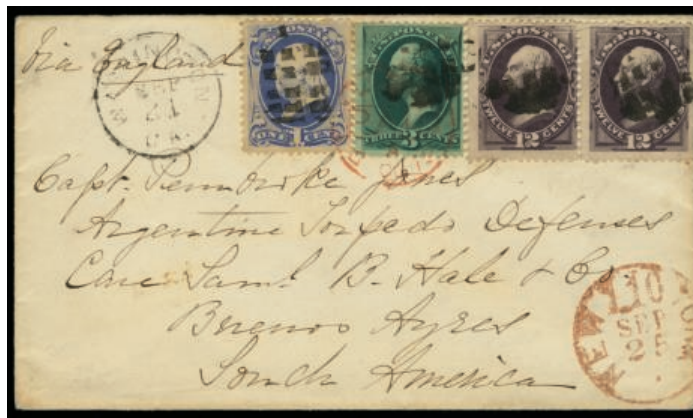 Via England
WASHINGTON
SEP
24
D.C.
U.S. POSTAGE
ONE 1 CENT
U.S. POSTAGE
THREE 3 CENTS
U.S. POSTAGE
TWELVE 12 CENTS
U.S. POSTAGE
TWELVE 12 CENTS
Capt. Pembroke Jones
Argentine Torpedo Defenses
Care Saml. B. Hale & Co.
Buenos Ayres
South America
NEW YORK
10
SEP
25